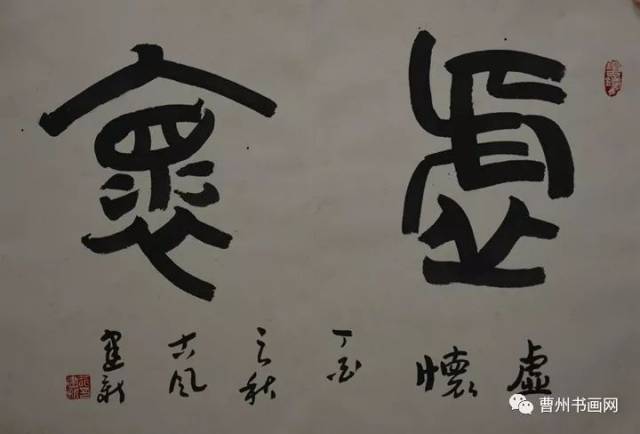 虚褱
虚懷
丁酉
之秋
古风
建新
曹州书画网